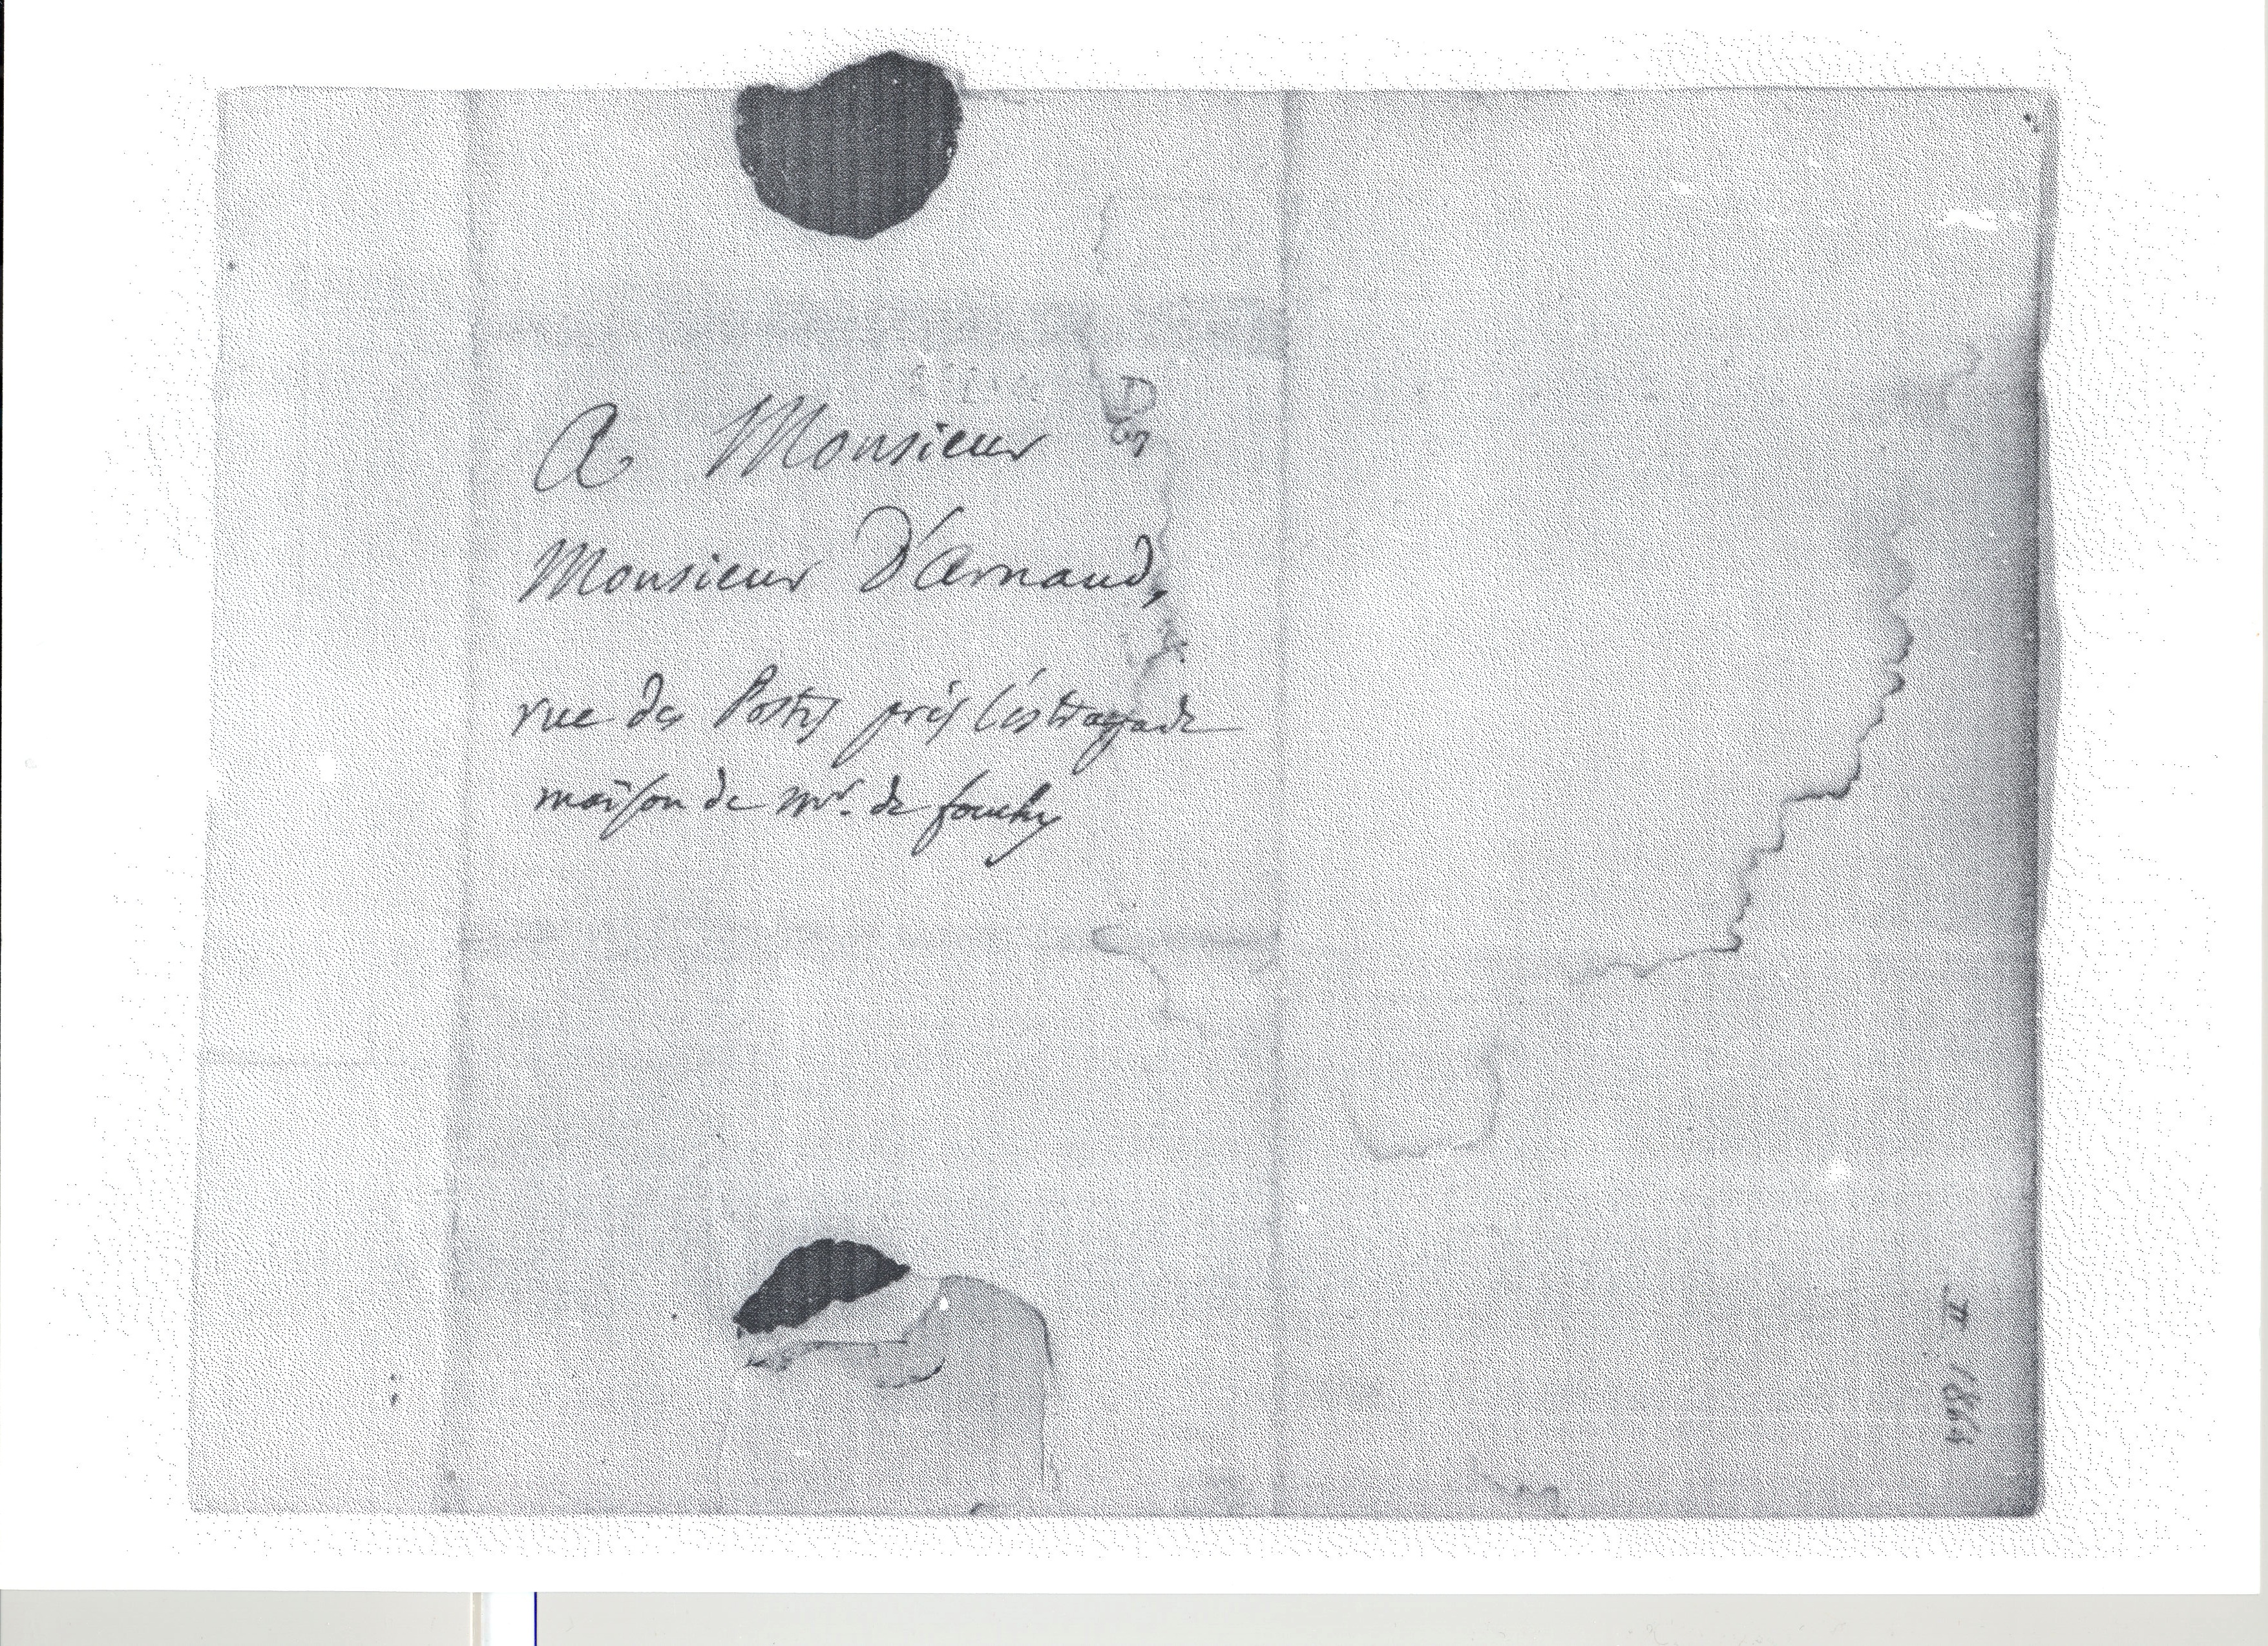 A Monsieur
Monsieur D'arnaud,
rue des Postes près l'éstrapade
maison de mr. de fouchy